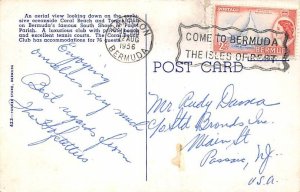 An aerial view looking down on the exclu-
sive oceanside Coral Beach and Tennis Club
on Bermuda's famous South Shore in Paget
Parish. A luxurious club with private beach
and excellent tennis courts. The Coral Beach
Club has accommodations for 50 guests.
AUG
1956
BERMUDA
COME TO BERMUDA
THE ISLES OF REST
POSTAGE
BERMUDA
POST CARD
Enjoying
ourselves very much
Best regards from
The
Mr Rudy
c/o Std Brands Inc.
Main St
Passaic, N.J.
U.S.A.